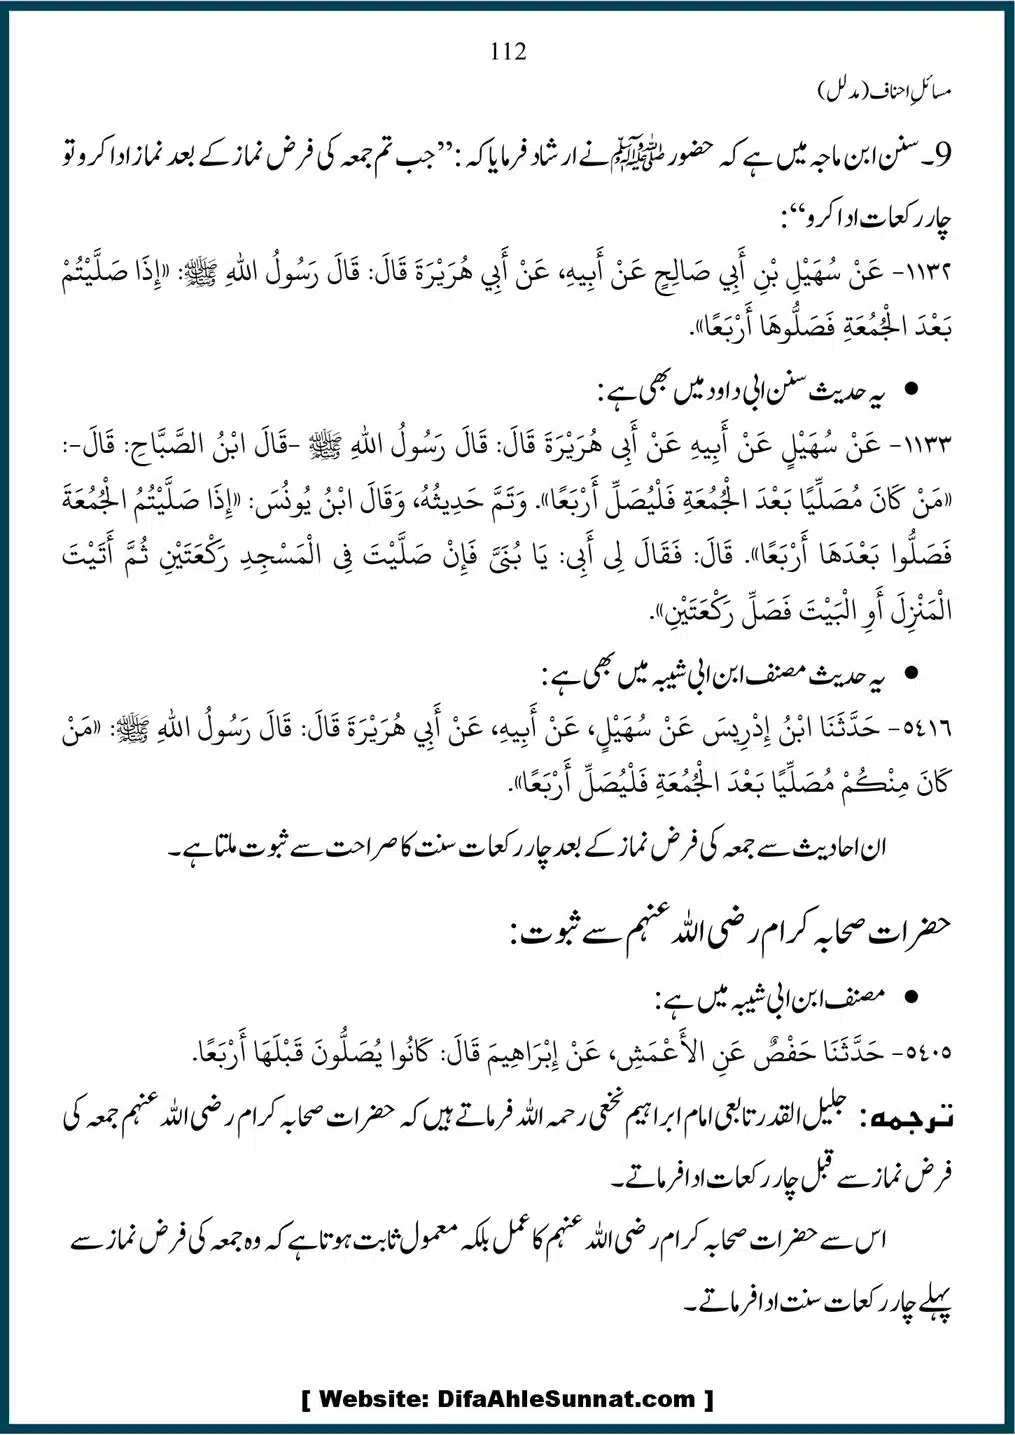 112
مسائلِ احناف (مدلل)
9۔ سنن ابن ماجہ میں ہے کہ حضور ﷺ نے ارشاد فرمایا کہ: ”جب تم جمعہ کی فرض نماز کے بعد نماز ادا کرو تو
چار رکعات ادا کرو“:
١١٣٢- عَنْ سُهَيْلِ بْنِ أَبِي صَالِحٍ عَنْ أَبِيهِ، عَنْ أَبِي هُرَيْرَةَ قَالَ: قَالَ رَسُولُ اللهِ ﷺ: «إِذَا صَلَّيْتُمْ
بَعْدَ الْجُمُعَةِ فَصَلُّوهَا أَرْبَعًا».
● یہ حدیث سنن ابی داود میں بھی ہے:
١١٣٣- عَنْ سُهَيْلٍ عَنْ أَبِيهِ عَنْ أَبِى هُرَيْرَةَ قَالَ: قَالَ رَسُولُ اللهِ ﷺ -قَالَ ابْنُ الصَّبَّاحِ: قَالَ-:
«مَنْ كَانَ مُصَلِّيًا بَعْدَ الْجُمُعَةِ فَلْيُصَلِّ أَرْبَعًا». وَتَمَّ حَدِيثُهُ، وَقَالَ ابْنُ يُونُسَ: «إِذَا صَلَّيْتُمُ الْجُمُعَةَ
فَصَلُّوا بَعْدَهَا أَرْبَعًا». قَالَ: فَقَالَ لِى أَبِى: يَا بُنَىَّ فَإِنْ صَلَّيْتَ فِى الْمَسْجِدِ رَكْعَتَيْنِ ثُمَّ أَتَيْتَ
الْمَنْزِلَ أَوِ الْبَيْتَ فَصَلِّ رَكْعَتَيْنِ».
● یہ حدیث مصنف ابن ابی شیبہ میں بھی ہے:
٥٤١٦- حَدَّثَنَا ابْنُ إِدْرِيسَ عَنْ سُهَيْلٍ، عَنْ أَبِيهِ، عَنْ أَبِي هُرَيْرَةَ قَالَ: قَالَ رَسُولُ اللهِ ﷺ: «مَنْ
كَانَ مِنْكُمْ مُصَلِّيًا بَعْدَ الْجُمُعَةِ فَلْيُصَلِّ أَرْبَعًا».
ان احادیث سے جمعہ کی فرض نماز کے بعد چار رکعات سنت کا صراحت سے ثبوت ملتا ہے۔
حضرات صحابہ کرام رضی اللہ عنہم سے ثبوت:
● مصنف ابن ابی شیبہ میں ہے:
٥٤٠٥- حَدَّثَنَا حَفْصٌ عَنِ الأَعْمَشِ، عَنْ إِبْرَاهِيمَ قَالَ: كَانُوا يُصَلُّونَ قَبْلَهَا أَرْبَعًا.
ترجمہ: جلیل القدر تابعی امام ابراہیم نخعی رحمہ اللہ فرماتے ہیں کہ حضرات صحابہ کرام رضی اللہ عنہم جمعہ کی
فرض نماز سے قبل چار رکعات ادا فرماتے۔
اس سے حضرات صحابہ کرام رضی اللہ عنہم کا عمل بلکہ معمول ثابت ہوتا ہے کہ وہ جمعہ کی فرض نماز سے
پہلے چار رکعات سنت ادا فرماتے۔
[ Website: DifaAhleSunnat.com ]